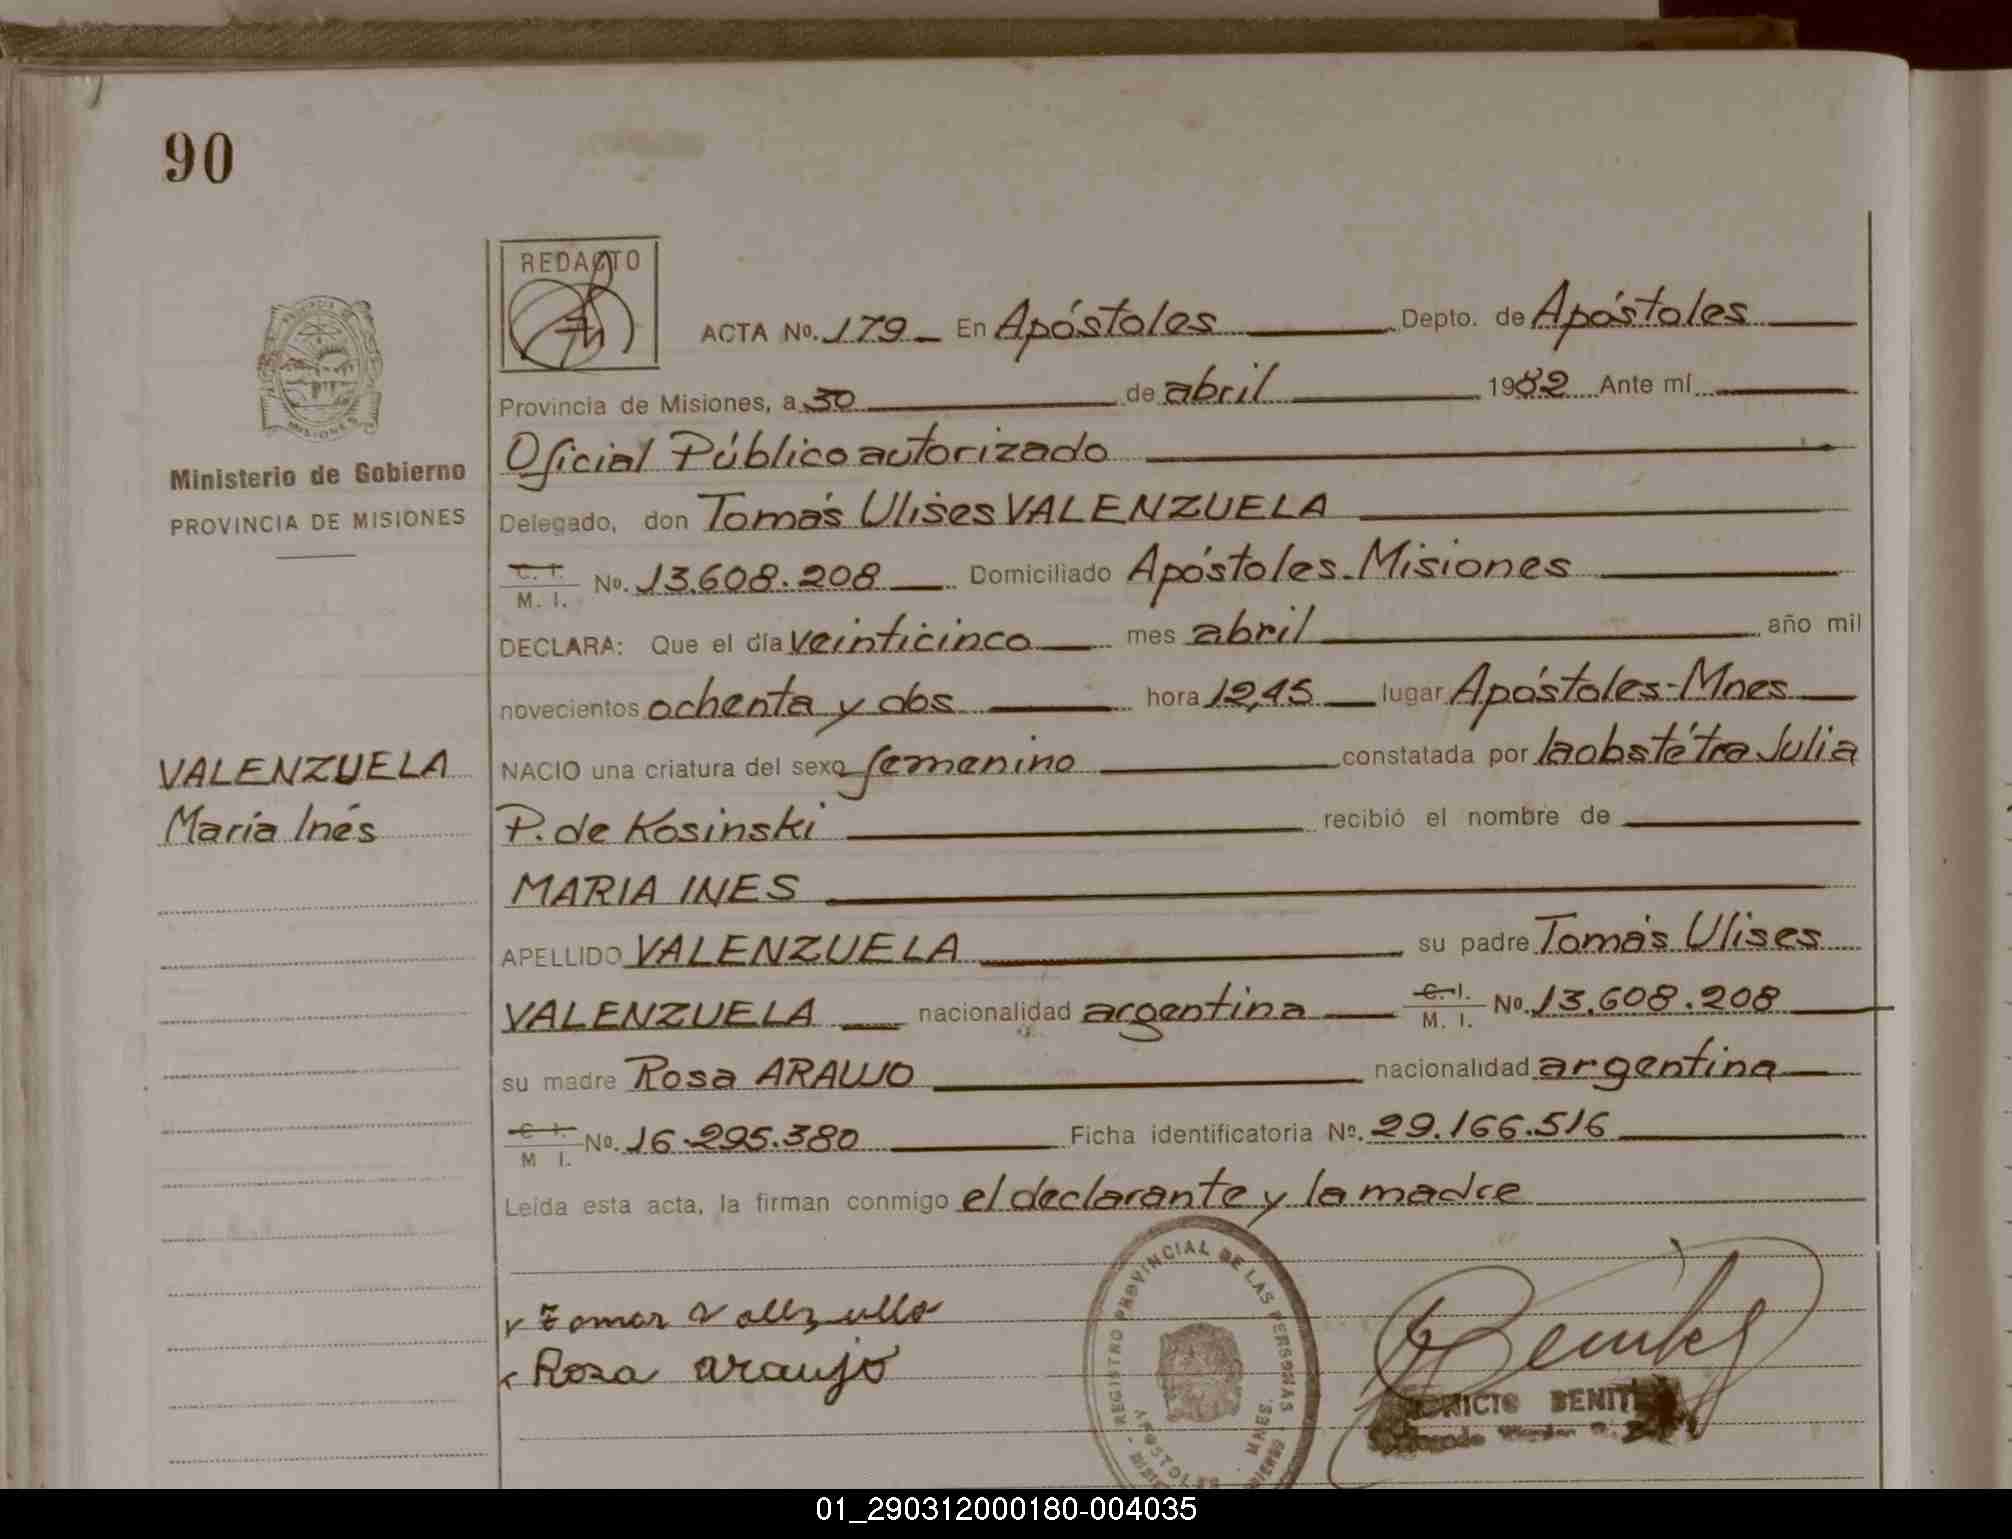 90
REDACTO
ACTA No. 179 En Apóstoles Depto. de Apóstoles
Provincia de Misiones, a 30 de abril 1982 Ante mí
Oficial Público autorizado
Ministerio de Gobierno
PROVINCIA DE MISIONES
Delegado, don Tomás Ulises VALENZUELA
C. I.
M. I. No. 13.608.208 Domiciliado Apóstoles-Misiones
DECLARA: Que el día veinticinco mes abril año mil
novecientos ochenta y dos hora 12,45 lugar Apóstoles-Mnes
VALENZUELA
María Inés
NACIO una criatura del sexo femenino constatada por la obstétra Julia
P. de Kosinski recibió el nombre de
MARIA INES
APELLIDO VALENZUELA su padre Tomás Ulises
VALENZUELA nacionalidad argentina C. I.
M. I. No. 13.608.208
su madre Rosa ARAUJO nacionalidad argentina
C. I.
M. I. No. 16.295.380 Ficha identificatoria No. 29.166.516
Leída esta acta, la firman conmigo el declarante y la madre
Rosa araujo
REGISTRO PROVINCIAL DE LAS PERSONAS
APOSTOLES MNES.
BENIT
01_290312000180-004035